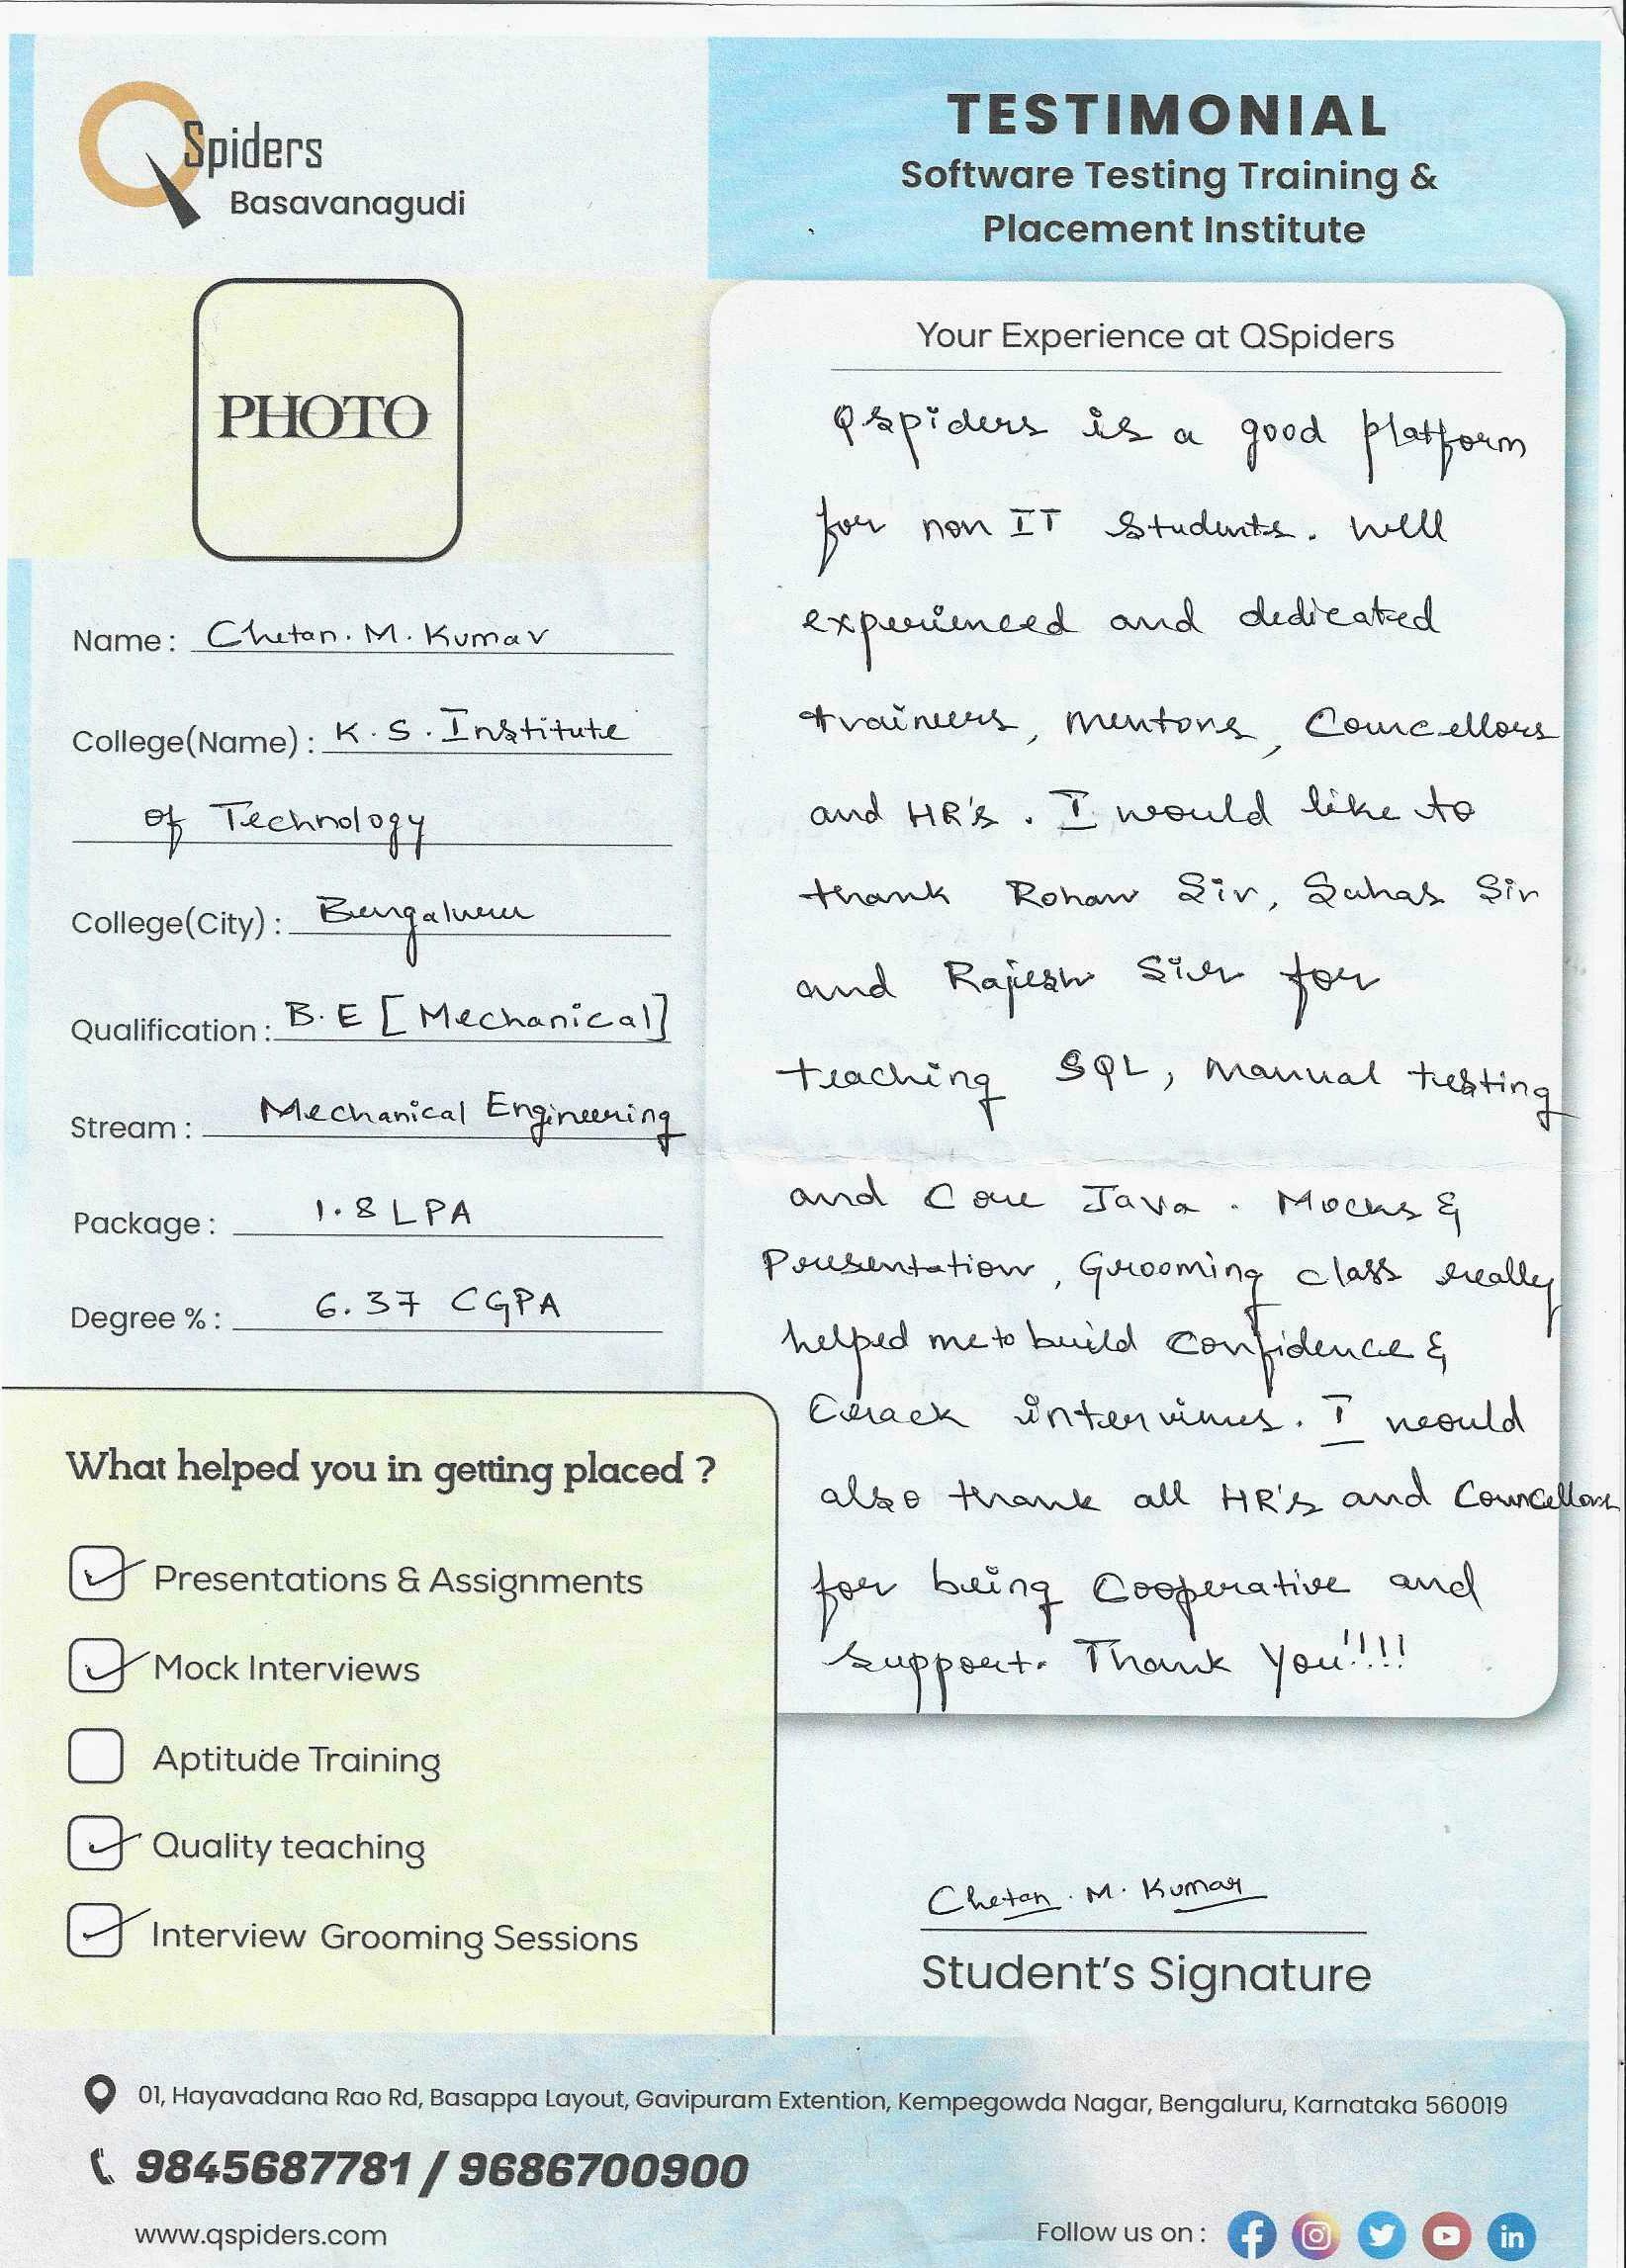 QSpiders
Basavanagudi
TESTIMONIAL
Software Testing Training &
Placement Institute
PHOTO
Name : Chetan. M. Kumar
College(Name) : K. S. Institute
of Technology
College(City) : Bengaluru
Qualification : B.E [Mechanical]
Stream : Mechanical Engineering
Package : 1.8 LPA
Degree % : 6.37 CGPA
Your Experience at QSpiders
Qspiders is a good platform
for non IT Students. Well
experienced and dedicated
trainers, mentors, Councellors
and HR's. I would like to
thank Rohan Sir, Suhas Sir
and Rajesh Sir for
teaching SQL, Manual testing
and Core Java. Mocks &
Presentation, Grooming class really
helped me to build Confidence &
Crack interviews. I would
also thank all HR's and Councellors
for being Cooperative and
support. Thank You!!!!
What helped you in getting placed ?
Presentations & Assignments
Mock Interviews
Aptitude Training
Quality teaching
Interview Grooming Sessions
Chetan. M. Kumar
Student's Signature
01, Hayavadana Rao Rd, Basappa Layout, Gavipuram Extention, Kempegowda Nagar, Bengaluru, Karnataka 560019
9845687781 / 9686700900
www.qspiders.com
Follow us on :